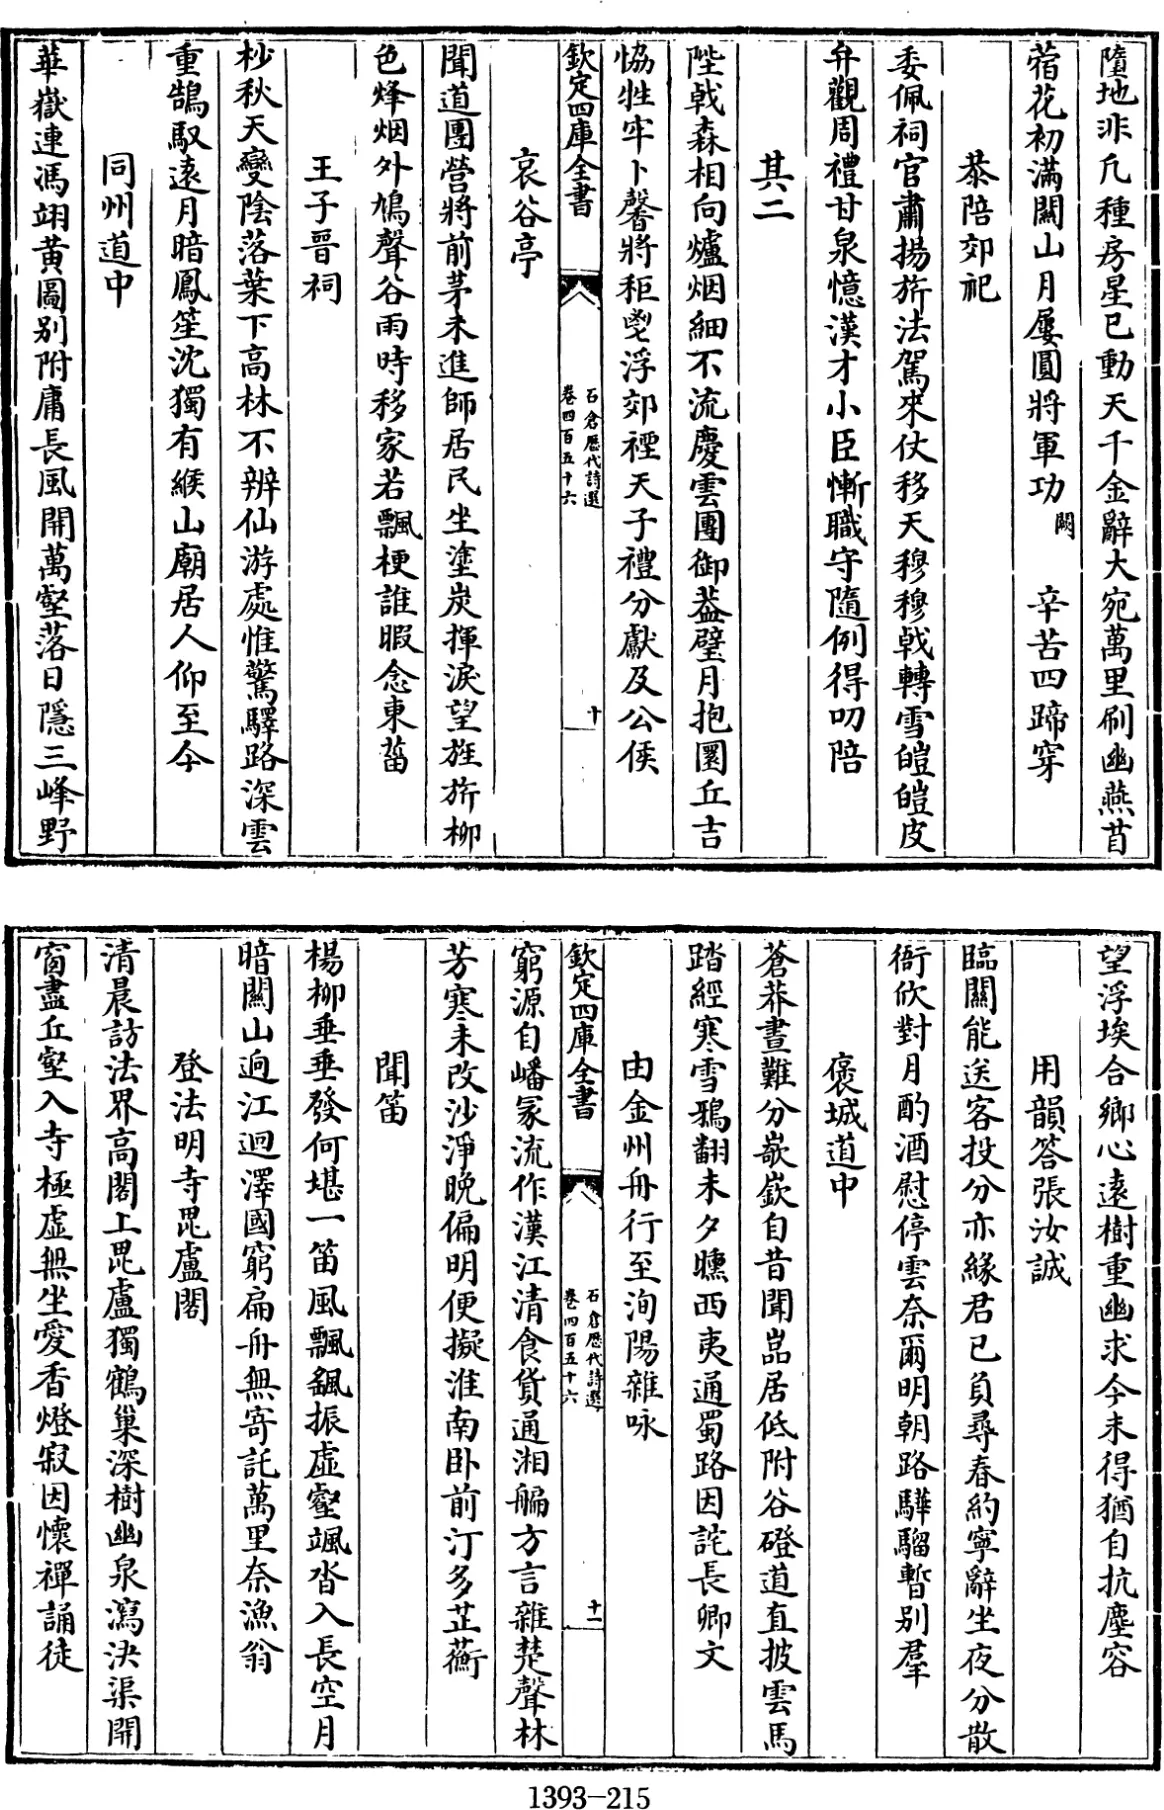 墮地非凡種房星已動天千金辭大宛萬里刷幽燕苜
蓿花初滿關山月屢圓將軍功闕辛苦四蹄穿
恭陪郊祀
委佩祠官肅揚旂法駕來仗移天穆穆戟轉雪皚皚皮
弁觀周禮甘泉憶漢才小臣慚職守隨例得叨陪
其二
陛戟森相向爐烟細不流慶雲團御葢璧月抱圜丘吉
恊牲牢卜馨將秬鬯浮郊禋天子禮分獻及公侯
欽定四庫全書
石倉歷代詩選
卷四百五十六
十
哀谷亭
聞道團營將前茅未進師居民坐塗炭揮淚望旌旂柳
色烽烟外鳩聲谷雨時移家若飄梗誰暇念東菑
王子晉祠
杪秋天變陰落葉下高林不辨仙游處惟驚驛路深雲
重鵠馭遠月暗鳳笙沈獨有緱山廟居人仰至今
同州道中
華嶽連馮翊黄圖别附庸長風開萬壑落日隱三峰野
望浮埃合鄉心遠樹重幽求今未得猶自抗塵容
用韻答張汝誠
臨關能送客投分亦緣君已負尋春約寧辭坐夜分散
衙欣對月酌酒慰停雲奈爾明朝路驊騮暫别羣
褒城道中
蒼莽晝難分嶔嶔自昔聞嵒居低附谷磴道直披雲馬
踏經寒雪鴉翻未夕曛西夷通蜀路因詫長卿文
由金州舟行至洵陽雜咏
欽定四庫全書
石倉歷代詩選
卷四百五十六
十一
窮源自嶓冢流作漢江清食貨通湘艑方言雜楚聲林
芳寒未改沙淨晚偏明便擬淮南卧前汀多芷蘅
聞笛
楊柳垂垂發何堪一笛風飄飖振虛壑颯沓入長空月
暗關山逈江迴澤國窮扁舟無寄託萬里奈漁翁
登法明寺毘盧閣
清晨訪法界高閣上毘盧獨鶴巢深樹幽泉瀉決渠開
窗盡丘壑入寺極虛無坐愛香燈寂因懷禪誦徒
1393-215